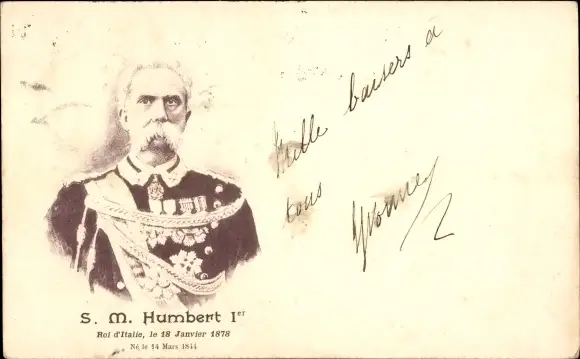 Mille baisers a
tous
Yvonne
S. M. Humbert Ier
Roi d'Italie, le 18 Janvier 1878
Né le 14 Mars 1844